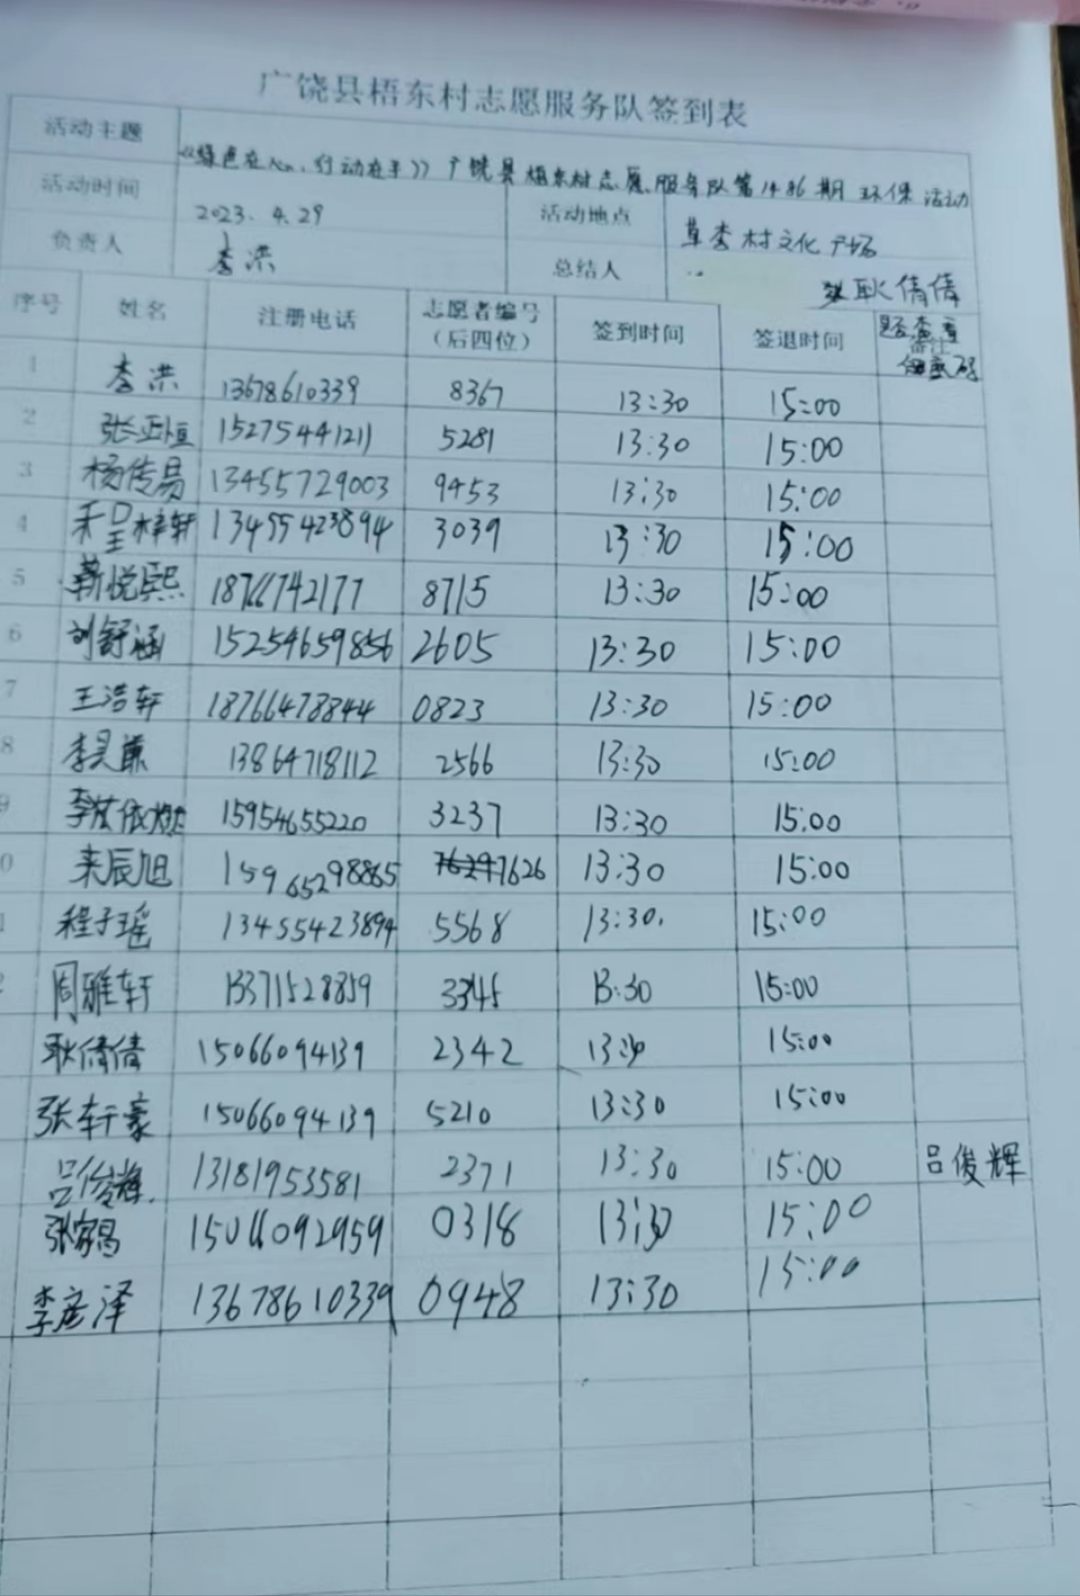 广饶县梧东村志愿服务队签到表
活动主题 《绿色在心、行动在手》广饶县梧东村志愿服务队第1486期环保活动
活动时间 2023.4.29 活动地点 草李村文化广场
负责人 李洪 总结人 耿倩倩
序号 姓名 注册电话 志愿者编号（后四位） 签到时间 签退时间 备注 是否查看健康码
1 李洪 13678610339 8367 13:30 15:00
2 张亚恒 15275441211 5281 13:30 15:00
3 杨传易 13455729003 9453 13:30 15:00
4 程梓轩 13455423894 3039 13:30 15:00
5 靳悦熙 18766742177 8715 13:30 15:00
6 刘舒涵 15254659856 2605 13:30 15:00
7 王浩轩 18766478844 0823 13:30 15:00
8 李昊 13864718112 2566 13:30 15:00
9 李依燃 15954655220 3237 13:30 15:00
0 来辰旭 15965298865 7626 13:30 15:00
1 程子瑶 13455423894 5568 13:30. 15:00
2 周雅轩 13371528859 3345 13:30 15:00
耿倩倩 15066094139 2342 13:30 15:00
张轩豪 15066094139 5210 13:30 15:00
吕俊辉. 13181953581 2371 13:30 15:00 吕俊辉
张家昌 15066092959 0318 13:30 15:00
李彦泽 13678610339 0948 13:30 15:00